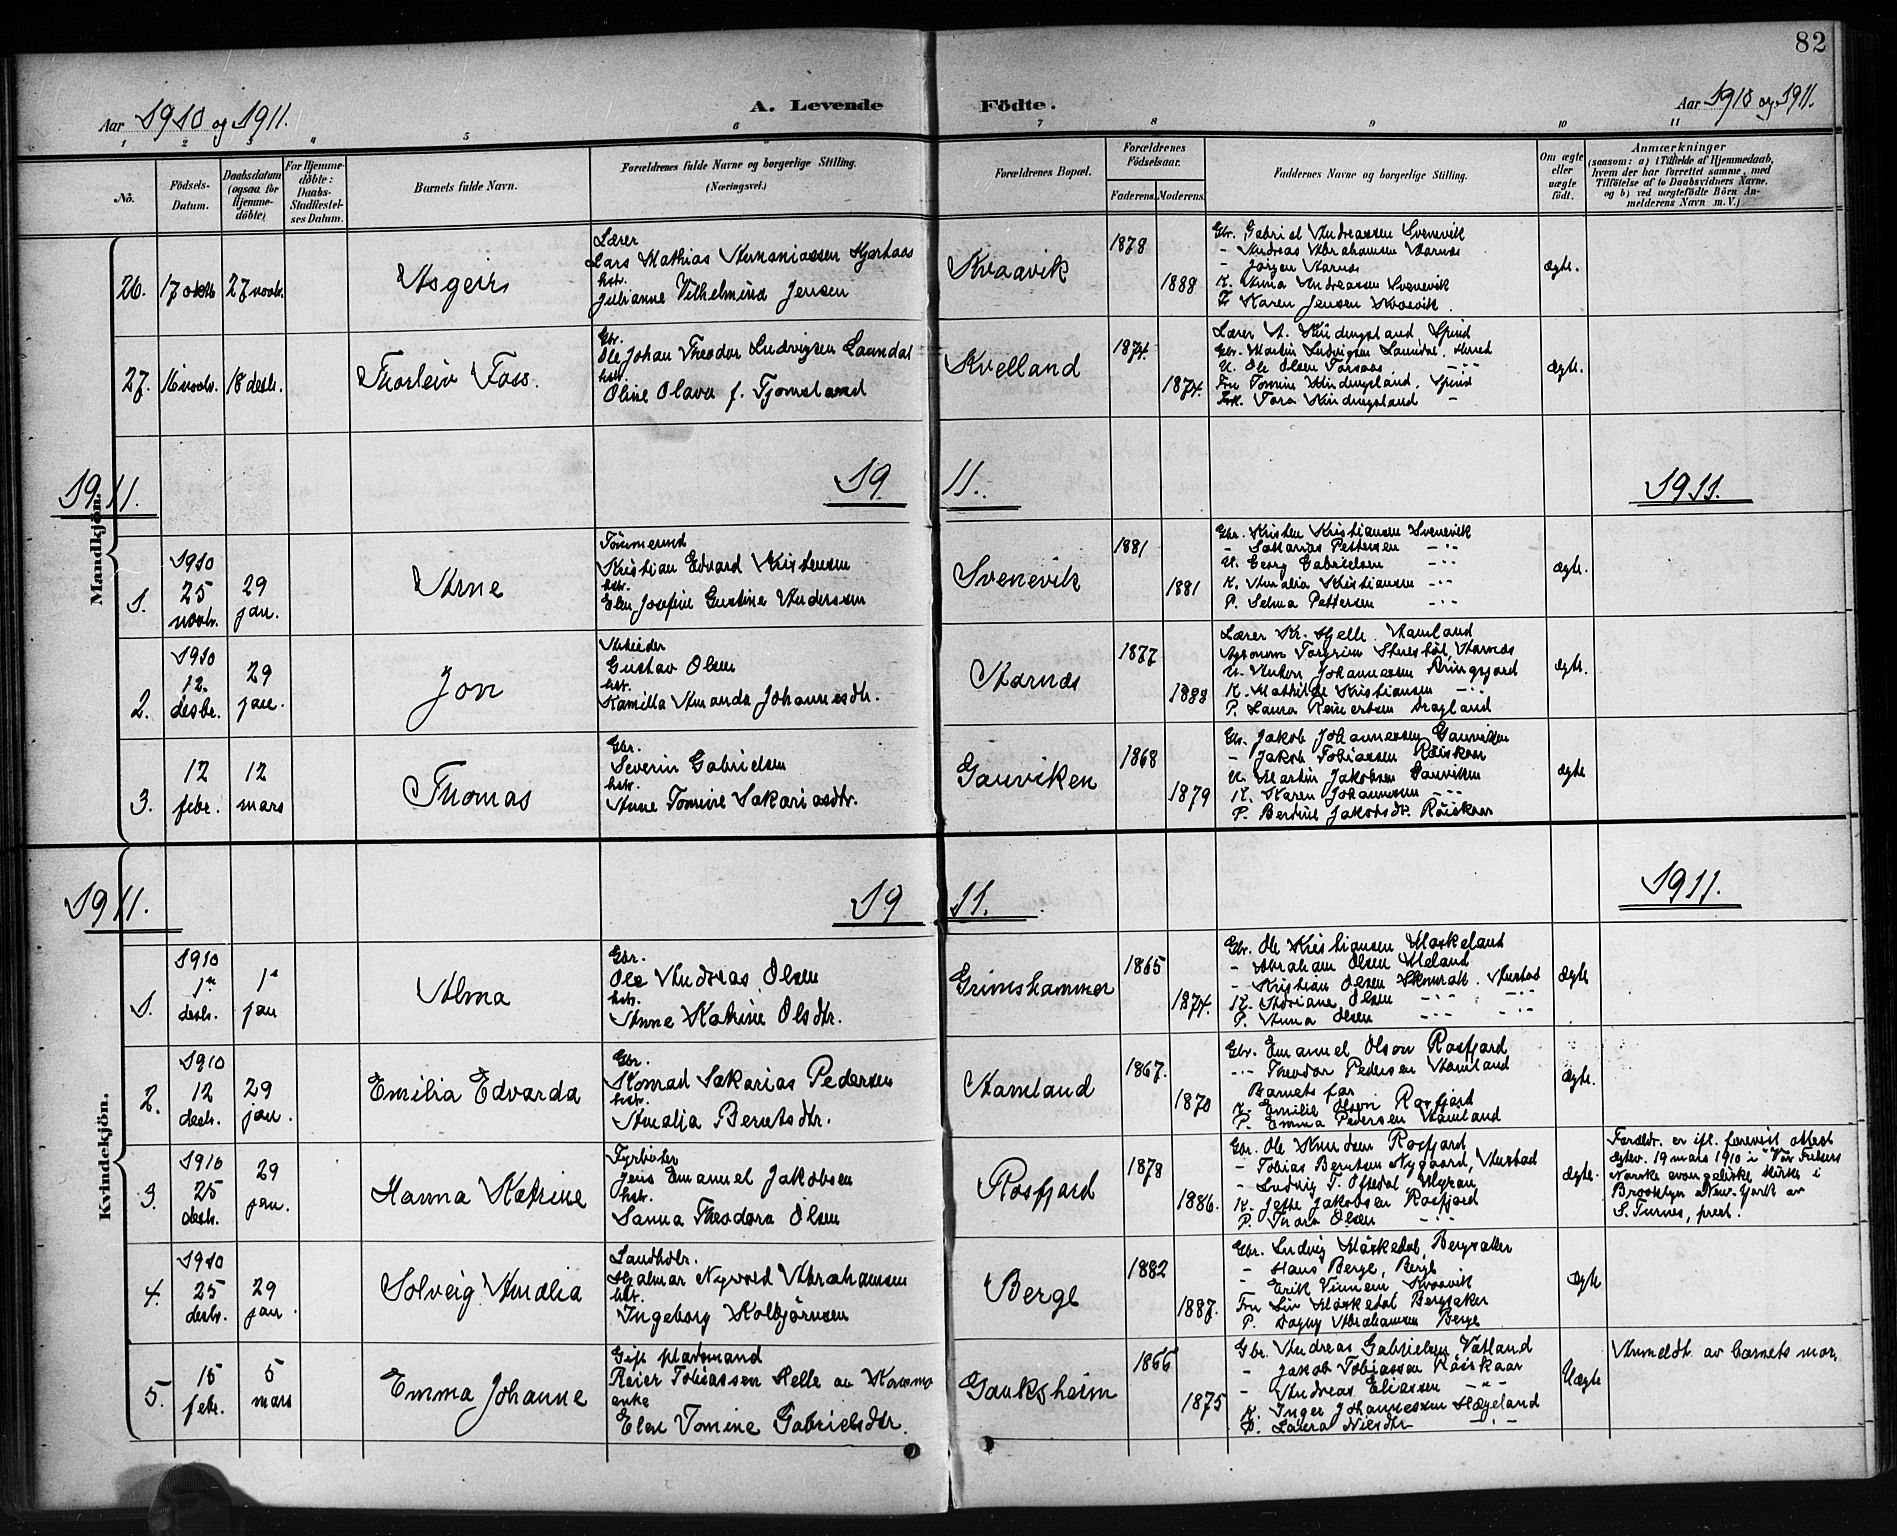 82
Aar 1910 og 1911.
A. Levende Födte.
Aar 1910 og 1911.
1 2 3 4 5 6 7 8 9 10 11
No.
Födsels-Datum.
Daabsdatum (ogsaa for Hjemme-döbte)
For Hjemme-döbte: Daabs-Stadfæstelses Datum.
Barnets fulde Navn.
Forældrenes fulde Navne og borgerlige Stilling.
(Næringsvei.)
Forældrenes Bopæl.
Forældrenes Födselsaar.
Faderens. Moderens.
Faddernes Navne og borgerlige Stilling.
Om ægte eller uægte födt.
Anmærkninger
(saasom: a) i Tilfælde af Hjemmedaab,
hvem der har forrettet samme, med
Tilföielse af to Daabsvidners Navne.
og b) ved uægtefödte Börn An-
melderens Navn m. V.)
Mandkjön.
26. 17 oktb 27 novb. Asgeir
Lærer
Lars Mathias Ananiassen Hjortaas
hstr.
Julianne Vilhelmine Jensen
Kvaavik
1878
1888
Gbr. Gabriel Andreassen Svenevik
- Andreas Abrahamsen Aarnes
- Jörgen Aarnes
K. Anna Andreassen Svenevik
Fr Karen Jensen Kvaavik.
ægte.
27. 16 novb. 18 desb. Thorleiv Foss.
Gbr.
Ole Johan Theodor Ludvigsen Laundal
hstr.
Oline Olava f. Fjomsland
Kvelland
1874.
1874.
Lærer A. Kindingsland Spind
Gbr. Martin Ludvigsen Laundal, Herred
U. Ole Olsen Torsaas -:-
Fru Tomine Kindingsland, Spind
Frk. Tora Kindingsland -
ægte.
1911. 1911. 1911.
1. 1910 25 novb. 29 jan. Arne
Tömmermd
Kristian Edvard Kristensen
hstr.
Elen Josefine Gustine Andersen
Svenevik
1881
1881
Gbr. Kristen Kristiansen Svenevik
- Sakarias Pettersen -:-
U. Georg Gabrielsen -:-
K. Amalia Kristiansen -:-
P. Selma Pettersen -:-
ægte.
2. 1910 12. desbr. 29 jan. Jon
Arbeider
Gustav Olsen
hstr.
Kamilla Amanda Johannesdtr.
Aarnæs
1877
1888
Lærer Kr. Hjelle. Aamland
U. Anton Johannessen Bringsjord
K. Mathilde Kristiansen -:-
P. Laura Reinertsen Aagland
ægte.
3. 12 febr. 12 mars Thomas
Gbr.
Severin Gabrielsen
hstr.
Anne Tomine Sakariasdtr.
Gauviken
1868
1879
Gbr. Jakob Johannessen Gauviken
- Jakob Tobiassen Röiskaar
U. Martin Jakobsen Gauviken
K. Karen Johannessen -:-
P. Bertine Jakobsdtr. Röiskaar
ægte
Kvindekjön.
1911. 1911. 1911.
1. 1910 1ste desb. 1ste jan Alma
Gbr.
Ole Andreas Olsen
hstr.
Anne Katrine Olsdtr.
Grimshammer
1865
1874.
Gbr. Ole Kristiansen Maskeland
- Abraham Olsen Meland
- Kristian Olsen Skomrak. Austad
K. Adriane Olsen -:- -:-
P. Anna Olsen -:- -:-
ægte
2. 1910 12 desb. 29 jan. Emilia Edvarda
Gbr.
Konrad Sakarias Pedersen
hstr.
Amalja Berntsdtr.
Aamland
1867.
1870
Gbr. Emanuel Olson Rosfjord
-:- Theodor Pedersen Aamland
Barnets far
K. Emilie Olson Rosfjord
P. Emma Pedersen Aamland
ægte.
3. 1910 25 desb. 29 jan. Hanna Katrine
Fyrböter
Jens Emanuel Jakobsen
hstr.
Sanna Theodora Olsen
Rosfjord
1878
1886.
Gbr. Ole Knudsen Rosfjord
- Tobias Berntsen Nygaard, Austad
- Ludvig T. Oftedal Myran
K. Jette Jakobsen Rosfjord
P. Thora Olsen -:-
ægte.
Forældr. er ifl. forevist attest
ægtev. 19 mars 1910 i "Vor Frelsers
Norske evangeliske Kirke i
Brooklyn New-York av
S. Turnes, prest.
4. 1910 25 desb. 29 jan Solveig Amalia
Landhdlr.
Hjalmar Nyvold Abrahamsen
hstr.
Ingeborg Kolbjörnsen
Berge
1882
1887.
Gbr. Ludvig Möskedal, Bergsaker
- Hans Berge, Berge
- Erik Vinnem Kvaavik
Fru Siv Möskedal Bergsaker
P. Dagny Abrahamsen Berge
ægte
5. 15 febr. 5 mars Emma Johanne
Gift plasmand
Reier Tobiassen Helle av
enke
Elen Tomine Gabrielsdtr.
Gauksheim
1866
1875
Gbr. Andreas Gabrielsen Vatland
- Jakob Tobiassen Röiskaar
- Andreas Eliassen -"-
K. Inger Johannessen Hægeland
P. Laura Nilsdtr -:-
Uægte
Anmeldt av barnets mor.